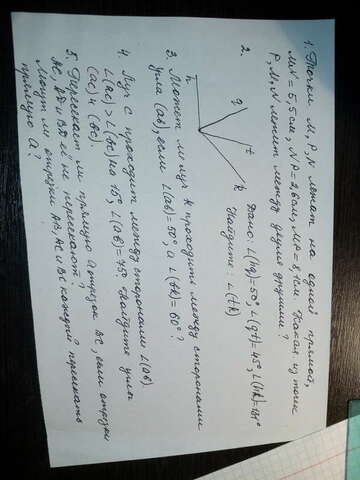 1. Точки M, P, N лежат на одной прямой,
MN = 5,5 см, NP = 2,8 см, MP = 8,3 см. Какая из точек
P, M, N лежит между двумя другими?
2.
h
q
t
k
Дано: ∠(hq)=50°, ∠(qt)=45°, ∠(hk)=131°
Найдите: ∠(tk)
3. Может ли луч k проходить между сторонами
угла (ab), если ∠(ab)=50°, а ∠(bk)=60°?
4. Луч c проходит между сторонами ∠(ab).
∠(ac) > ∠(bc) на 15°, ∠(ab)=75°. Найдите углы
(ac) и (bc).
5. Пересекает ли прямую a отрезок BC, если отрезки
AC, AD и BD её не пересекают?
Могут ли отрезки AB, AC и BC каждый пересекать
прямую a?